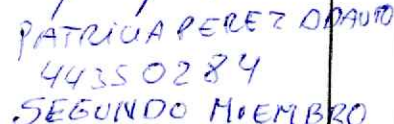 PATRICIA PEREZ
44350284
SEGUNDO MIEMBRO